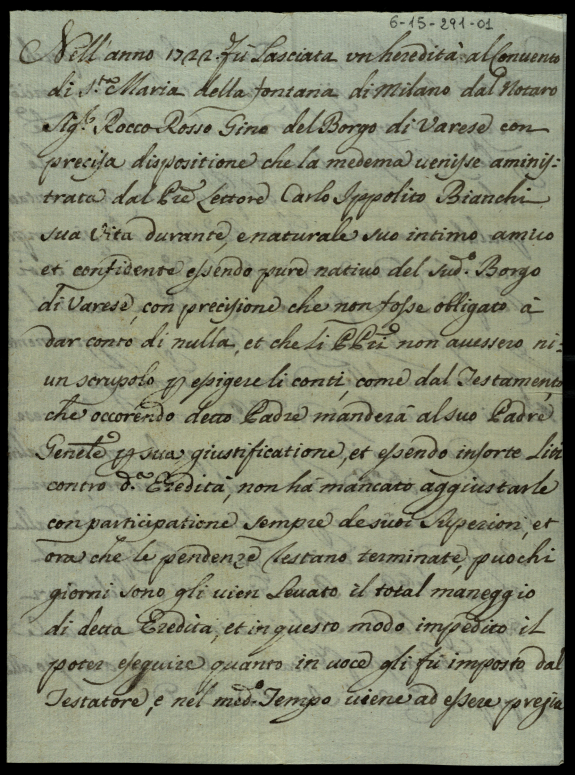 6-15-291-01
Nell'anno 1722. Fù Lasciata vn heredità al Convento
di S.ta Maria della fontana di Milano dal Notaro
Sig.r Rocco Rosso Gino del Borgo di Varese con
precisa dispositione che la medema venisse aminis-
trata dal Pre Lettore Carlo Ippolito Bianchi
sua Vita durante, e naturale suo intimo amico
et confidente essendo pure nativo del sud.o Borgo
di Varese, con precisione che non fosse obligato à
dar conto di nulla, et che li PPri non avessero ni-
un scrupolo p esigere li conti, come dal Testamento
che occorendo detto Padre manderà al suo Padre
Genele p sua giustificatione, et essendo insorte Liti
contro d.a Eredità, non hà mancato aggiustarle
con participatione sempre de suoi Superiori, et
ora che le pendenze restano terminate, puochi
giorni sono gli vien Levato il total maneggio
di detta Eredita, et in questo modo impedito il
poter eseguire quanto in voce gli fù imposto dal
Testatore, e nel med.o Tempo viene ad essere